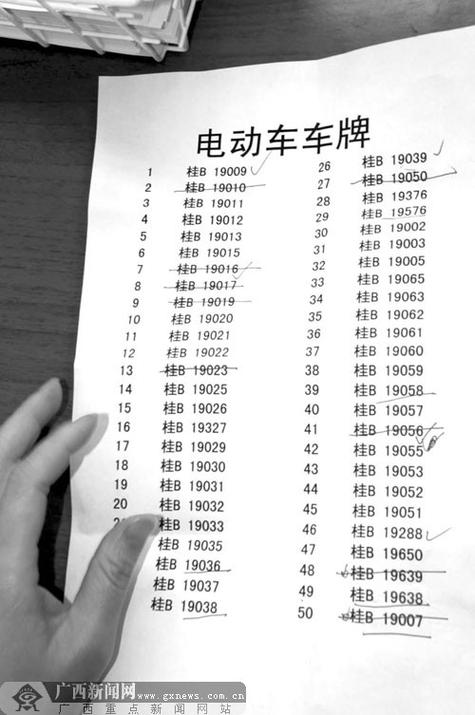 电动车车牌
1 桂B 19009
2 桂B 19010
3 桂B 19011
4 桂B 19012
5 桂B 19013
6 桂B 19015
7 桂B 19016
8 桂B 19017
9 桂B 19019
10 桂B 19020
11 桂B 19021
12 桂B 19022
13 桂B 19023
14 桂B 19025
15 桂B 19026
16 桂B 19327
17 桂B 19029
18 桂B 19030
19 桂B 19031
20 桂B 19032
桂B 19033
桂B 19035
桂B 19036
桂B 19037
桂B 19038
26 桂B 19039
27 桂B 19050
28 桂B 19376
29 桂B 19576
30 桂B 19002
31 桂B 19003
32 桂B 19005
33 桂B 19065
34 桂B 19063
35 桂B 19062
36 桂B 19061
37 桂B 19060
38 桂B 19059
39 桂B 19058
40 桂B 19057
41 桂B 19056
42 桂B 19055
43 桂B 19053
44 桂B 19052
45 桂B 19051
46 桂B 19288
47 桂B 19650
48 桂B 19639
49 桂B 19638
50 桂B 19007
广西新闻网
www.gxnews.com.cn
广西重点新闻网站